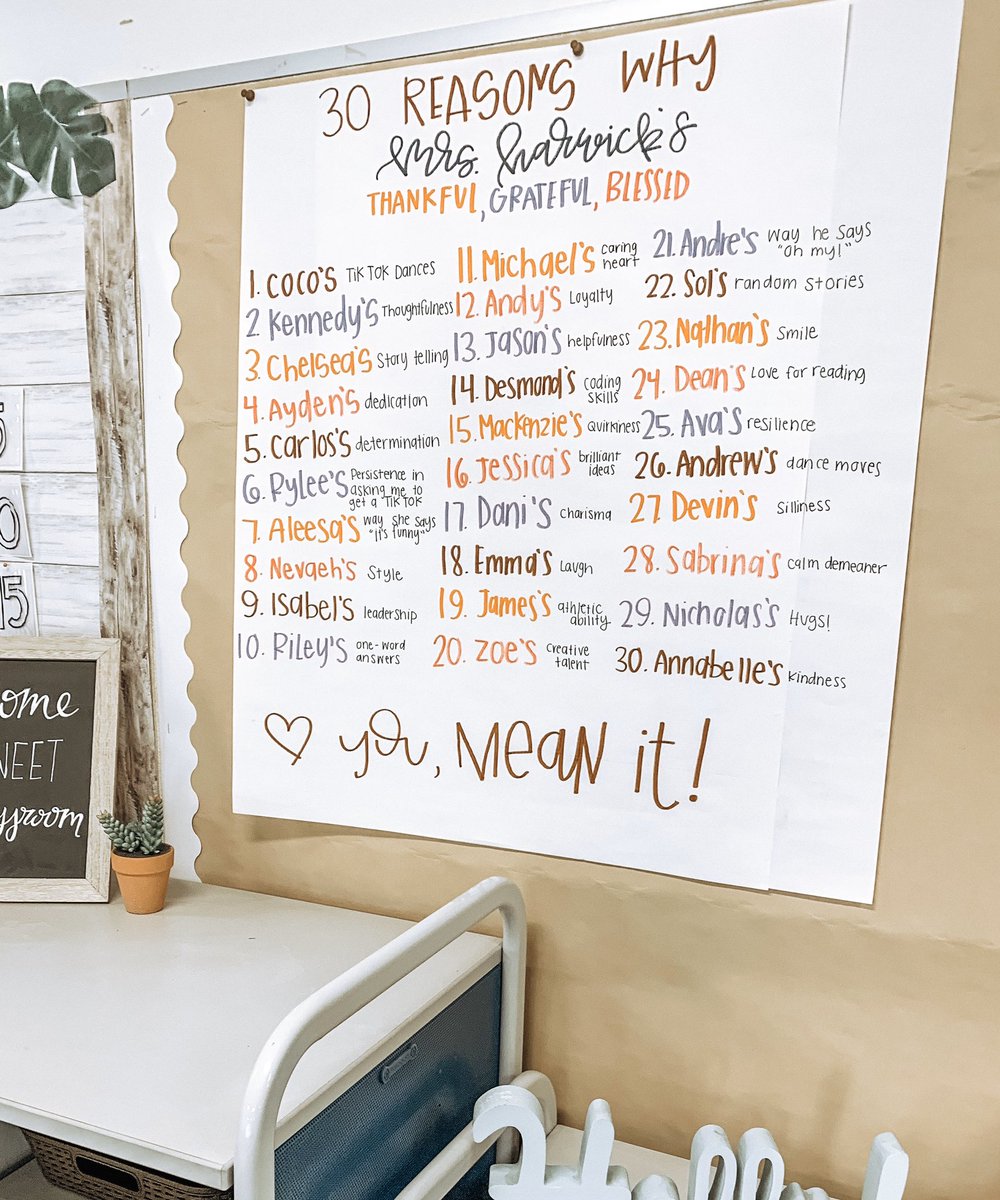 30 REASONS WHY
Mrs. Harwick's
THANKFUL, GRATEFUL, BLESSED
1. COCO'S TIKTOK DANCES
2 Kennedy's Thoughtfulness
3. Chelsea's Story telling
4. Ayden's dedication
5. Carlos's determination
6. Rylee's Persistence in asking me to get a TIKTOK
7. Aleesa's way she says "it's funny"
8. Nevaeh's Style
9. Isabel's leadership
10. Riley's one-word answers
11. Michael's caring heart
12. Andy's Loyalty
13. Jason's helpfulness
14. Desmond's coding skills
15. Mackenzie's Quirkiness
16. Jessica's brilliant ideas
17. Dani's charisma
18. Emma's Laugh
19. James's athletic ability
20. Zoe's Creative talent
21. Andre's way he says "Oh my!"
22. Sol's random stories
23. Nathan's Smile
24. Dean's Love for reading
25. Ava's resilience
26. Andrew's dance moves
27. Devin's silliness
28. Sabrina's calm demeaner
29. Nicholas's Hugs!
30. Annabelle's Kindness
♡ you, Mean it!
5
0
15
ome
WEET
ssroom